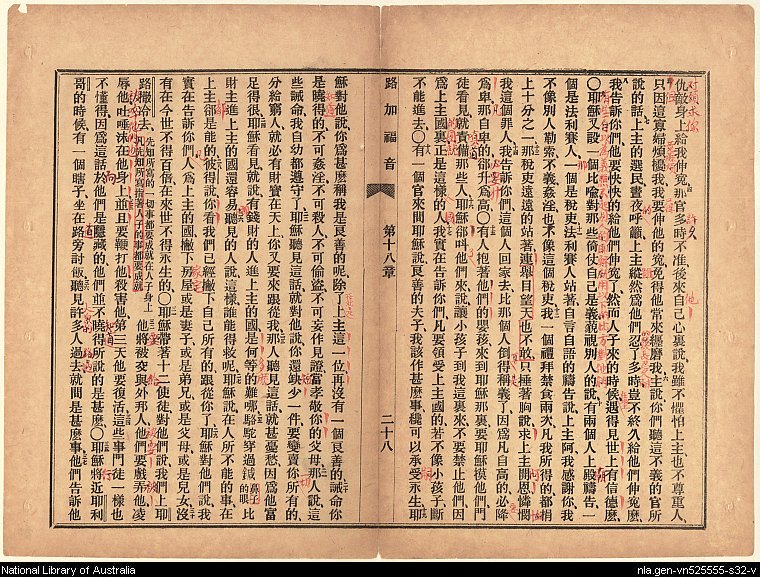 仇敵身上給我伸寃那官多時不准後來自己心裏說我雖不懼怕上主也不尊重人
只因這寡婦煩擾我我要伸他的寃免得他常來纏磨我主說你們聽這不義的官所
說的話上主的選民晝夜呼籲上主縱然爲他們忍了多時豈不終久給他們伸寃麽
我告訴你們他要快快的給他們伸寃了然而人子來的時候遇得見世上有信德麽
〇耶穌又設一個比喻對那些倚仗自己是義藐視別人的說有兩個人上殿禱告一
個是法利賽人一個是稅吏法利賽人站著自言自語的禱告說上主阿我感謝你我
不像別人勒索不義姦淫也不像這個稅吏我一個禮拜禁食兩次凡我所得的都捐
上十分之一那稅吏遠遠的站著連舉目望天也不敢只捶著胸說求上主開恩憐憫
我這個罪人我告訴你們這個人回家去比那個人倒得稱義了因爲凡自高的必降
爲卑那自卑的卻升爲高〇有人抱著他們的嬰孩來到耶穌那裏要耶穌摸他們門
徒看見就責備那些人耶穌卻叫他們來說讓小孩子到我這裏來不要禁止他們因
爲上主國裏正是這樣的人我實在告訴你們凡要領受上主國的若不像小孩子斷
不能進去〇有一個官來問耶穌說良善的夫子我該作甚麽事纔可以承受永生耶
路加福音 第十八章 二十八
穌對他說你爲甚麽稱我是良善的呢除了上主這一位再沒有一個良善的誡命你
是曉得的不可姦淫不可殺人不可偷盜不可妄作見證當孝敬你的父母那人說這
些誡命我自幼都遵守了耶穌聽見這話就對他說你還缺少一件要變賣你所有的
分給窮人就必有財寶在天上你又要來跟從我那人聽見這話就甚憂愁因爲他富
足得很耶穌看見就說有錢財的人進上主的國是何等的難哪駱駝穿過鍼鼻子的眼比
財主進上主的國還容易聽見的人說這樣誰能得救呢耶穌說在人所不能的事在
上主卻是能的彼得說你看我們已經撇下自己所有的跟從你了耶穌對他們說我
實在告訴你們人爲上主的國撇下房屋或是妻子或是弟兄或是父母或是兒女沒
有在今世不得百倍在來世不得永生的〇耶穌帶著十二使徒對他們說我們上耶
路撒冷去凡先知所寫指著人子的事都要成就先知所寫的一切事都要成就在人子身上他將被交與外邦人他們要戲弄他凌
辱他吐唾沫在他身上並且要鞭打他殺害他第三天他要復活這些事門徒一樣也
不懂得因爲這話於他們是隱藏的他們並不曉得所說的是甚麽〇耶穌將近耶利
哥的時候有一個瞎子坐在路旁討飯聽見許多人過去就問是甚麽事他們告訴他
National Library of Australia
nla.gen-vn525555-s32-v